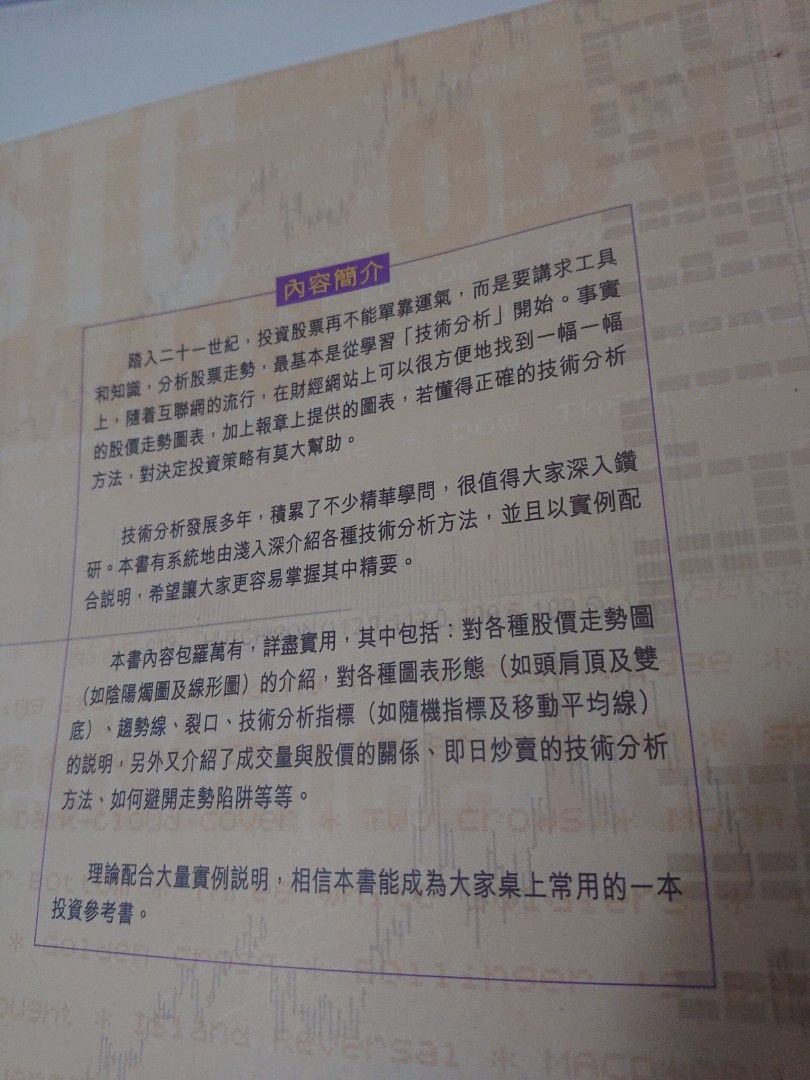 內容簡介
踏入二十一世紀，投資股票再不能單靠運氣，而是要講求工具
和知識，分析股票走勢，最基本是從學習「技術分析」開始。事實
上，隨着互聯網的流行，在財經網站上可以很方便地找到一幅一幅
的股價走勢圖表，加上報章上提供的圖表，若懂得正確的技術分析
方法，對決定投資策略有莫大幫助。
技術分析發展多年，積累了不少精華學問，很值得大家深入鑽
研。本書有系統地由淺入深介紹各種技術分析方法，並且以實例配
合説明，希望讓大家更容易掌握其中精要。
本書內容包羅萬有，詳盡實用，其中包括：對各種股價走勢圖
（如陰陽燭圖及線形圖）的介紹，對各種圖表形態（如頭肩頂及雙
底）、趨勢線、裂口、技術分析指標（如隨機指標及移動平均線）
的説明，另外又介紹了成交量與股價的關係、即日炒賣的技術分析
方法、如何避開走勢陷阱等等。
理論配合大量實例説明，相信本書能成為大家桌上常用的一本
投資參考書。
Dark-Cloud Cover * Two Crows *
* Golden Cross * Bollinger
* Island Reversal * MACD